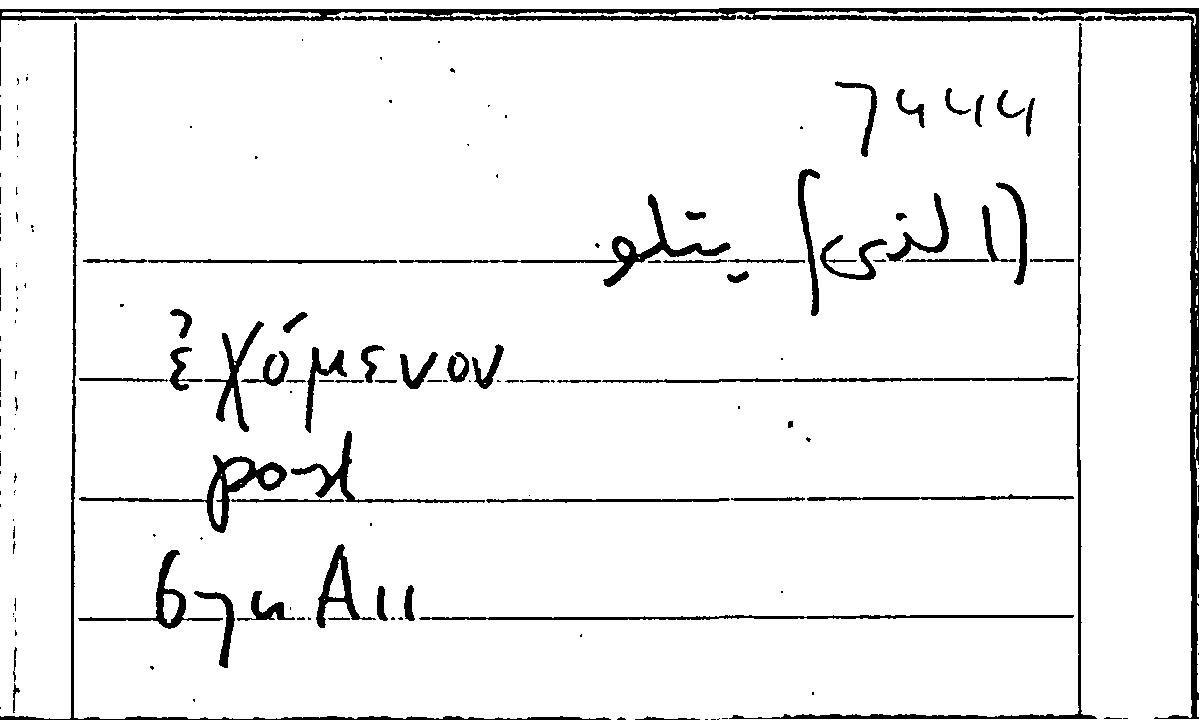 7444
(الذى) يتلو
ἐχόμενον
post
674 A 11